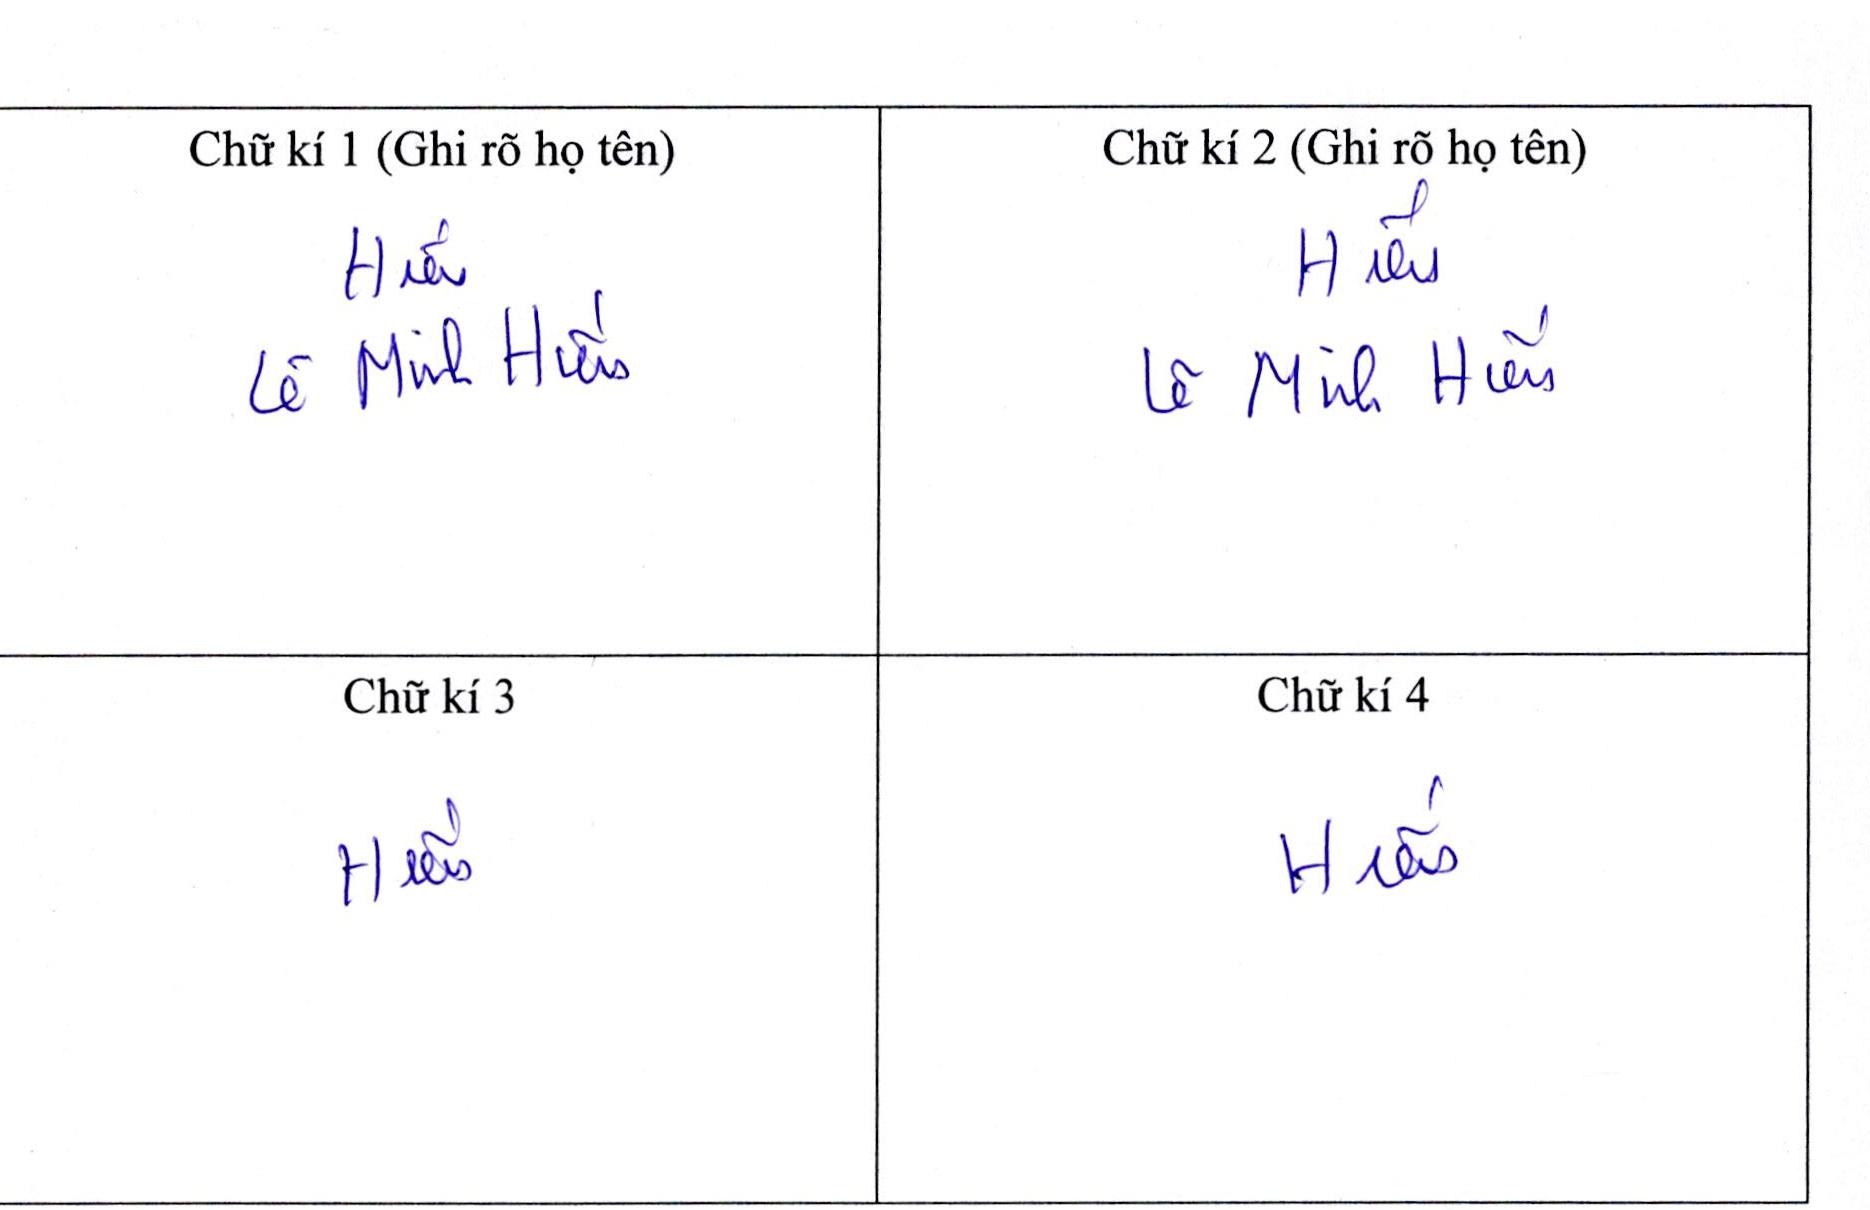 Chữ kí 1 (Ghi rõ họ tên)
Hiếu
Lê Minh Hiếu
Chữ kí 2 (Ghi rõ họ tên)
Hiếu
Lê Minh Hiếu
Chữ kí 3
Hiếu
Chữ kí 4
Hiếu